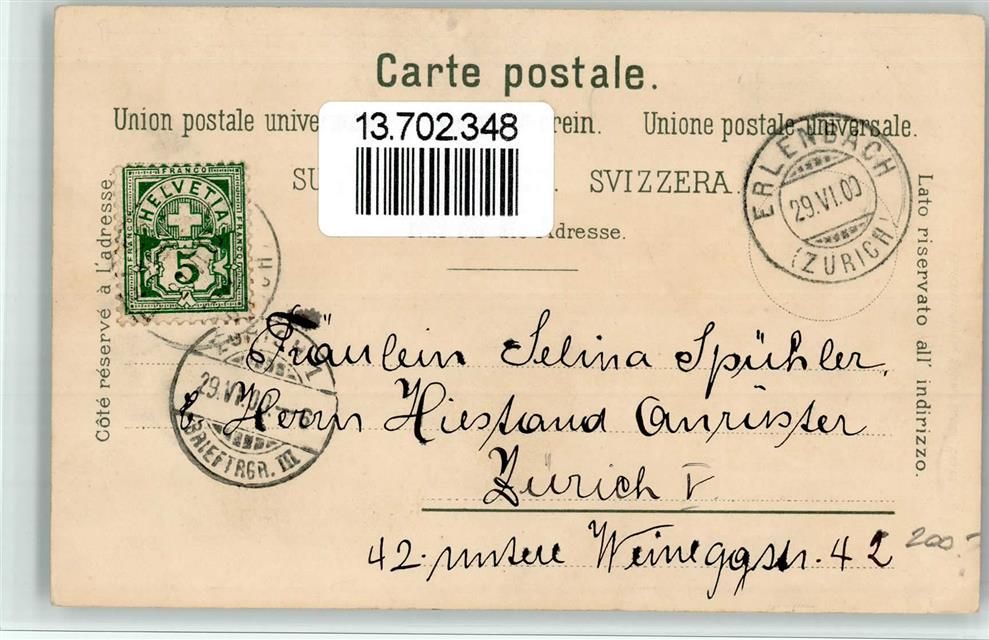 Carte postale.
Union postale unive rein. Unione postale universale.
13.702.348
SU SVIZZERA.
Adresse.
Côté réservé à l'adresse.
Lato riservato all' indirizzo.
FRANCO
HELVETIA
FRANCO
FRANCO
5
ERLENBACH
29.VI.00
(ZÜRICH)
29.VI.00
BRIEFTRGR. III
Fräulein Selina Spühler.
b/ Herrn Hiestand Anrüster
Zürich V.
42. untere Weineggstr. 42
200.-